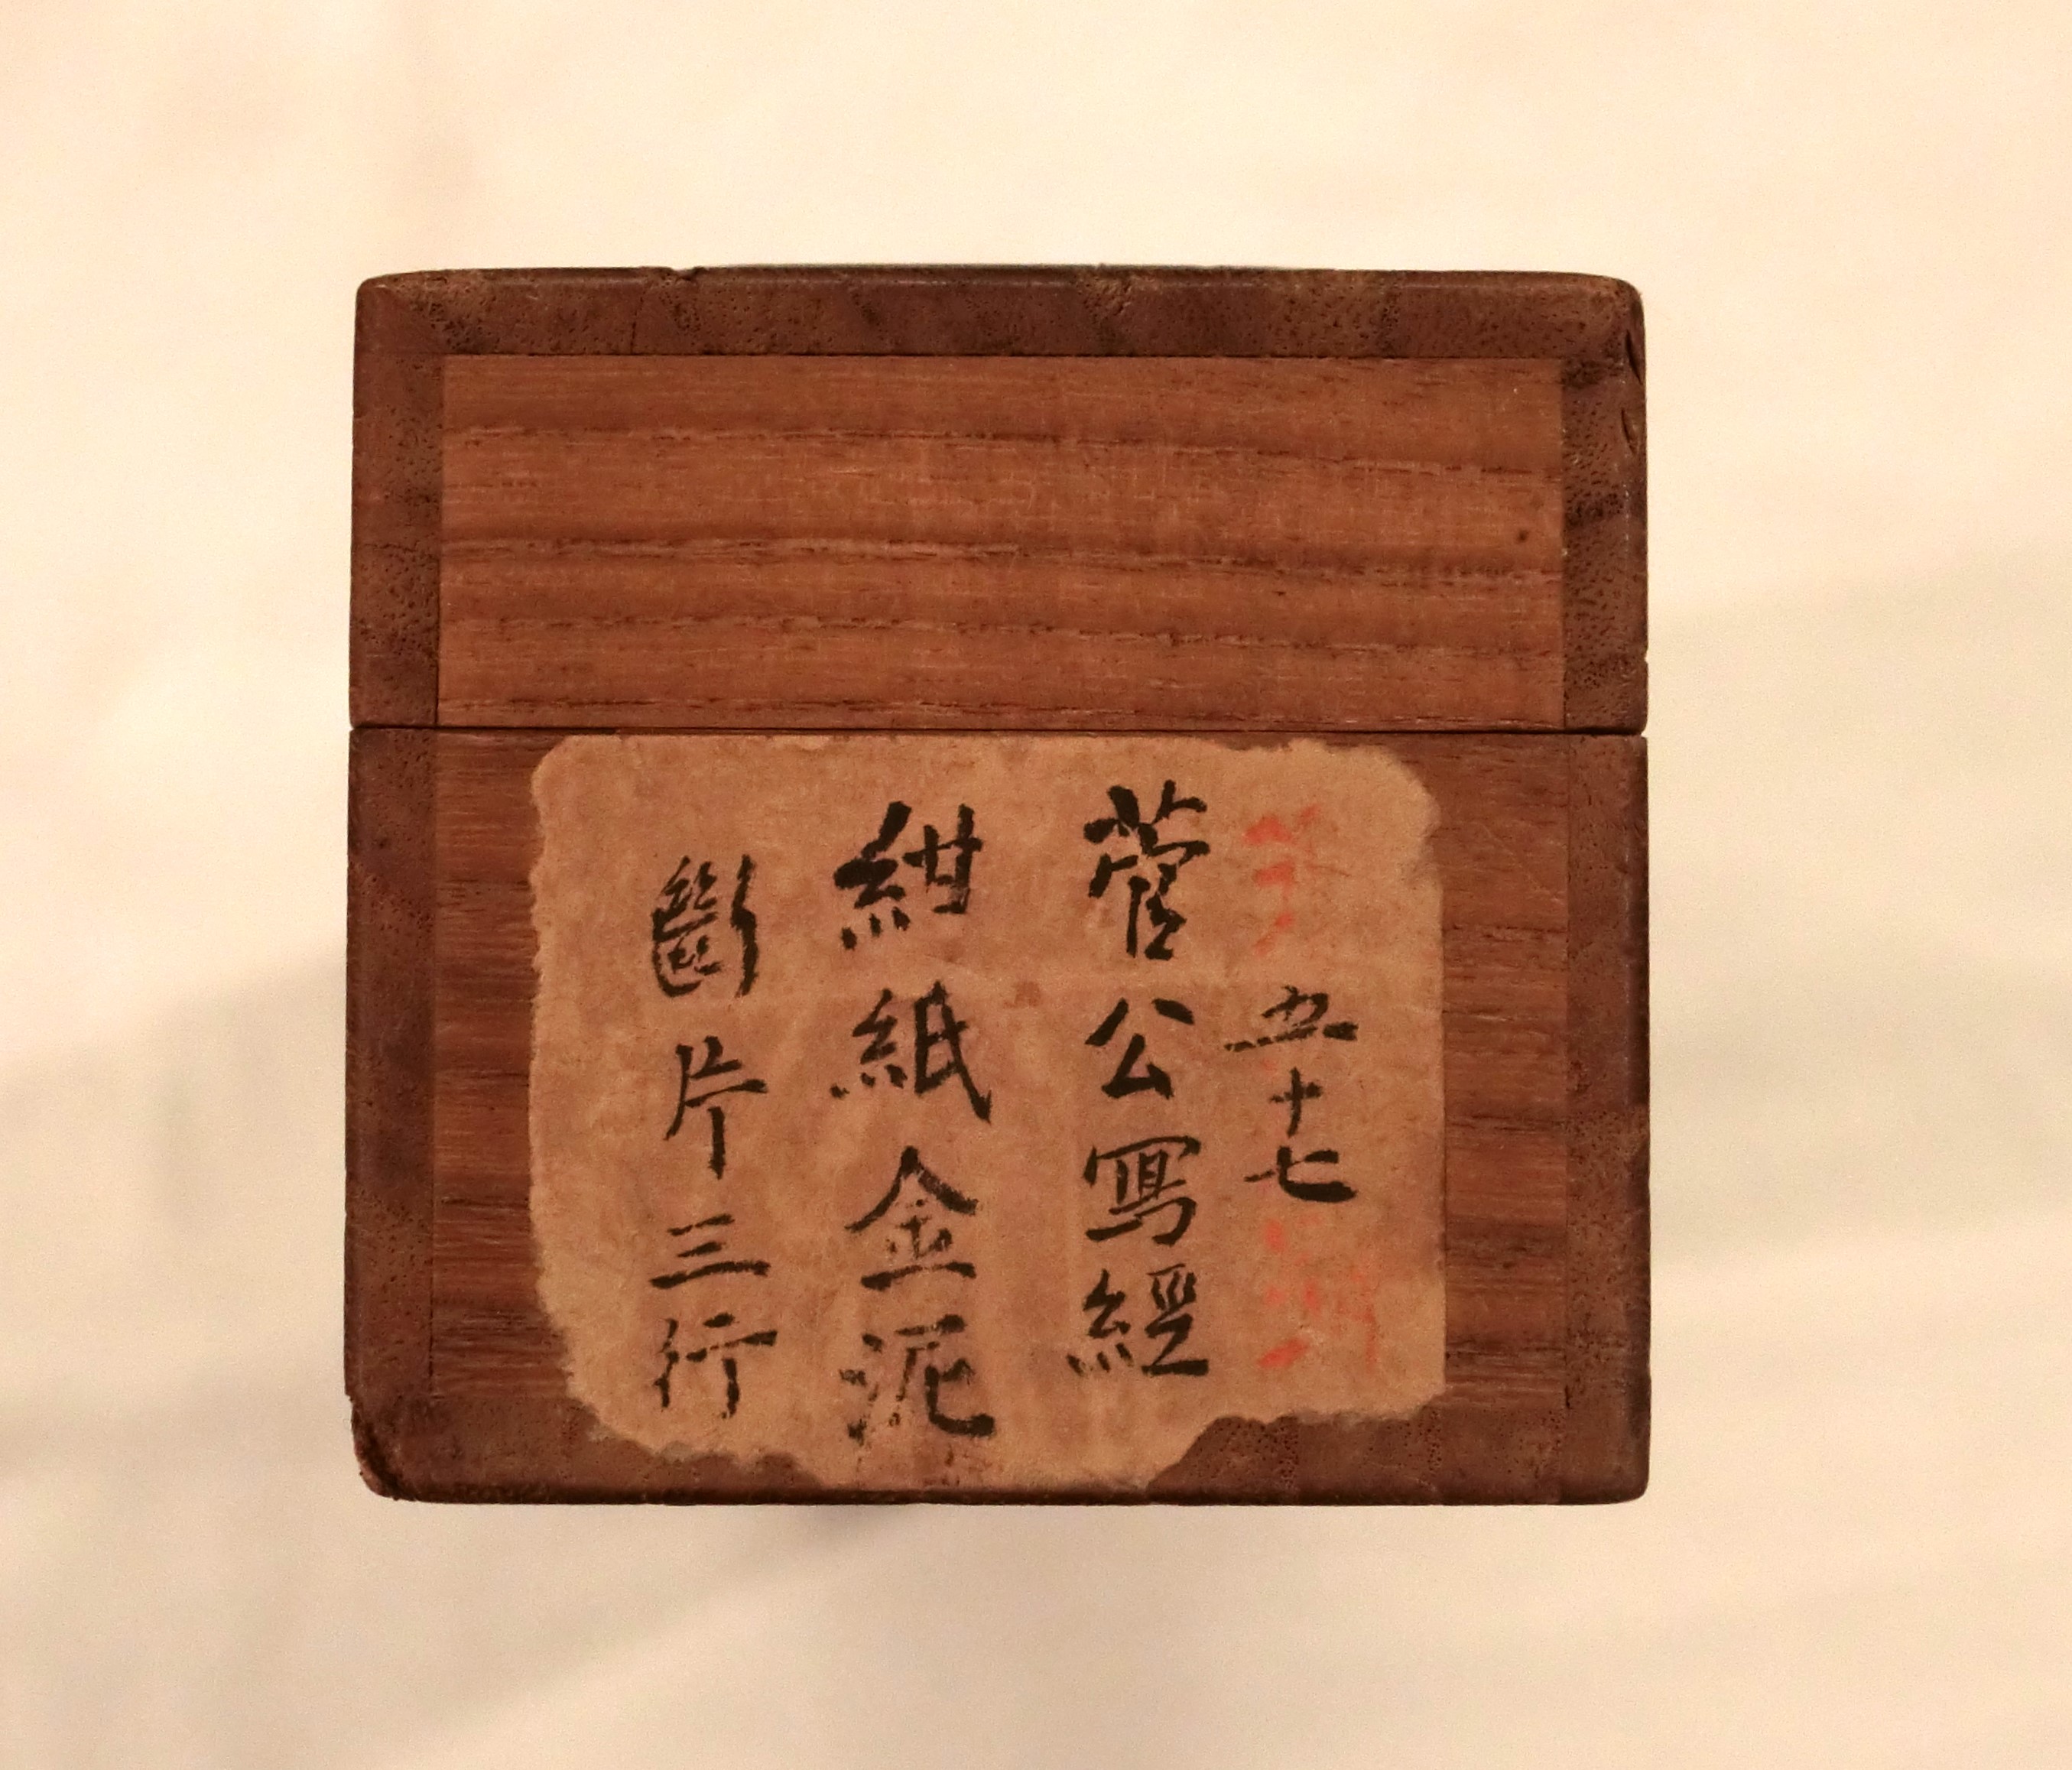 五十七
菅公寫經
紺紙金泥
斷片三行